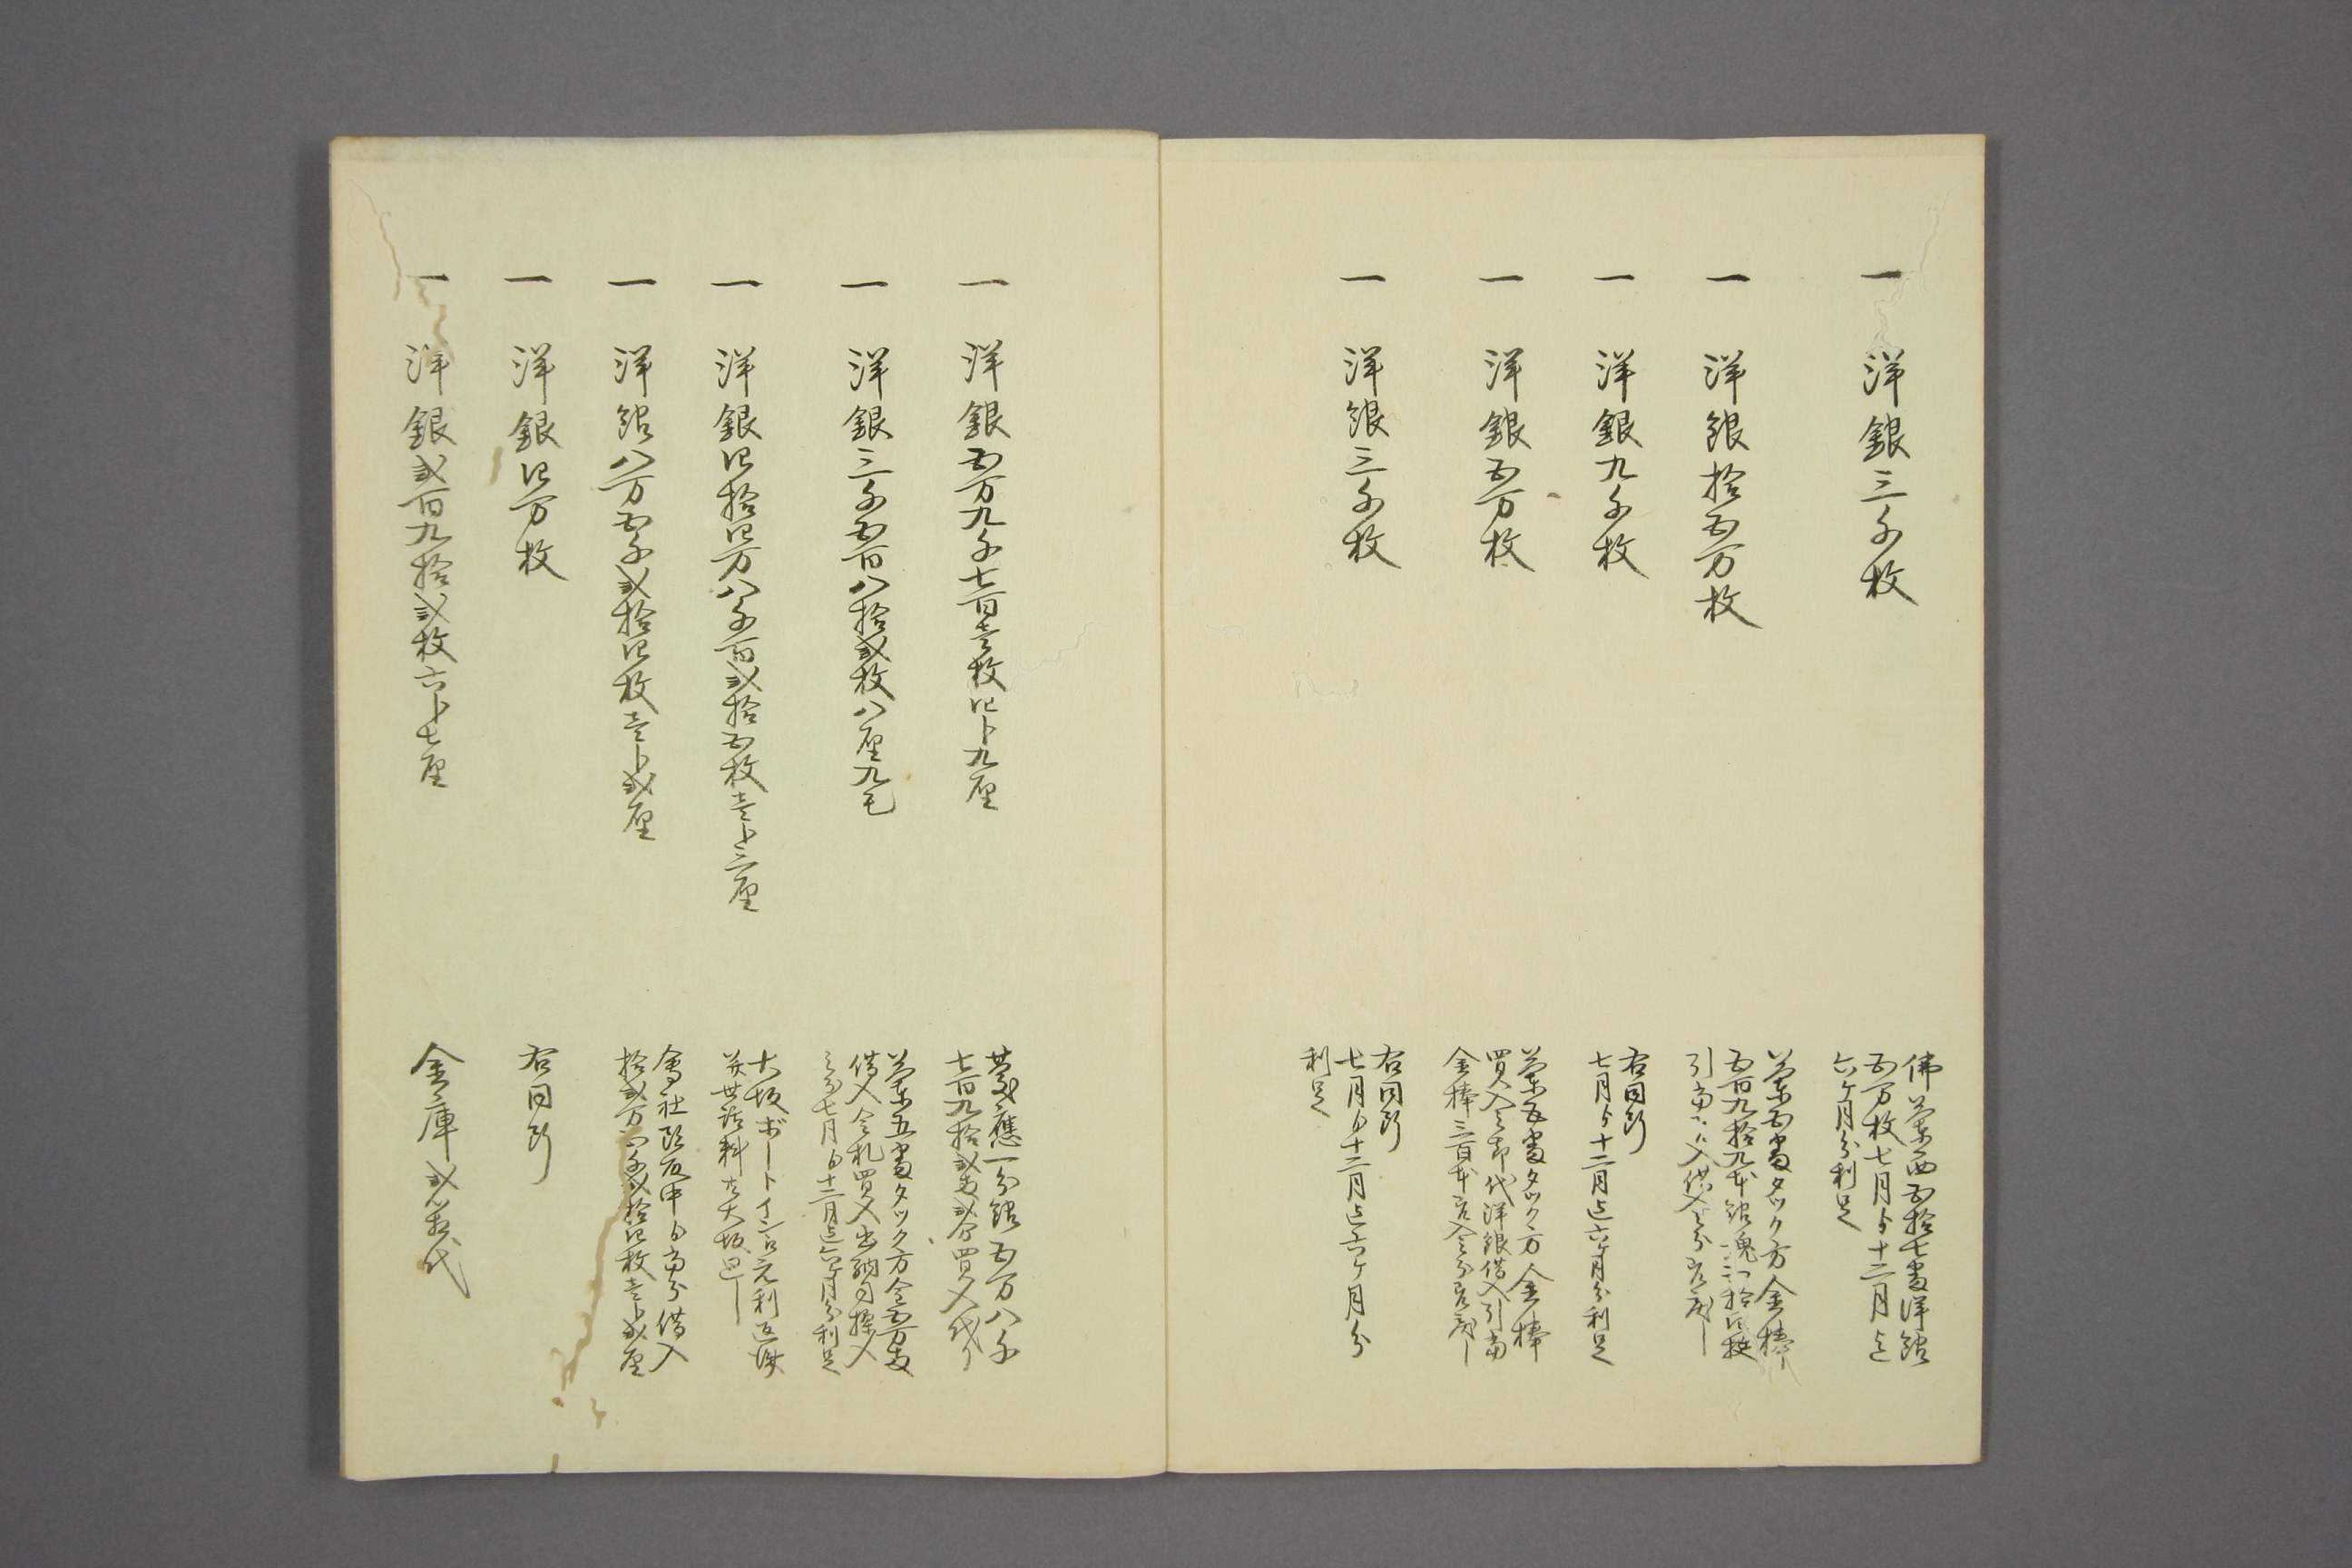 一 洋銀三千枚
佛蘭西五拾七番洋銀
五万枚七月ゟ十二月迄
六ケ月分利足
一 洋銀拾五万枚
蘭五番タツク方金棒
五百九拾九本銀塊
引当
一 洋銀九千枚
右同断
七月ゟ十二月迄六ケ月分利足
一 洋銀五万枚
蘭五番タツク方金棒
買入之節代洋銀借入引当
金棒三百本
一 洋銀三千枚
右同断
七月ゟ十二月迄六ケ月分
利足
一 洋銀五万九千七百壱枚四卜九厘
慶應一分銀五万八千
七百九拾弐両弐分買入代り
一 洋銀三千五百八拾弐枚八厘九毛
蘭五番タツク方金五万両
借入金札買入出納司操入
之分七月ゟ十二月迄六ケ月分利足
一 洋銀四拾四万八千百弐拾五枚壱卜三厘
大坂ボートイン江元利返済
并世話料共大坂廻し
一 洋銀八万五千弐拾四枚壱卜弐厘
會社頭取中ゟ当分借入
拾弐万五千弐拾四枚壱卜弐厘
一 洋銀四万枚
右同断
一 洋銀弐百九拾弐枚六卜七厘
金庫弐ツ代